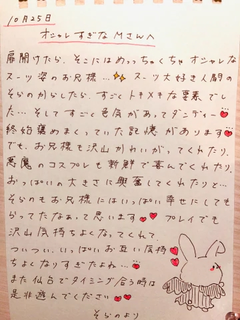 10月25日
オシャレすぎなMさんへ
扉開けたら、そこにはめっっちゃくちゃオシャレな
スーツ姿のお兄様…✨✨ スーツ大好き人間の
そらのからしたら、すごくトキメキな要素でし
た…そしてすごく色気があってダンディー❤
終始褒めまくっていた記憶があります❤
でも、お兄様も沢山かわいがってくれたり、
悪魔のコスプレも新鮮で喜んでくれたり、
おっぱいの大きさに興奮してくれたりと…
そらのもお兄様にはいっぱい幸せにしても
らってたなぁって思います❤❤ プレイでも
沢山気持ちよくなってくれて、
ついつい、いっぱいお互い気持❤
ちよくなりすぎたよね…❤
また仙台でタイミング合う時は
是非遊んでください❤❤
そらのより